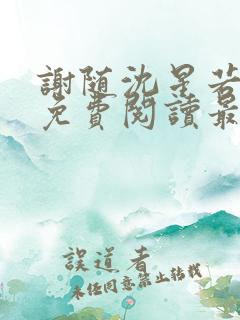 謝随沈星若
免費閱讀最
誤道者
未经同意禁止转载